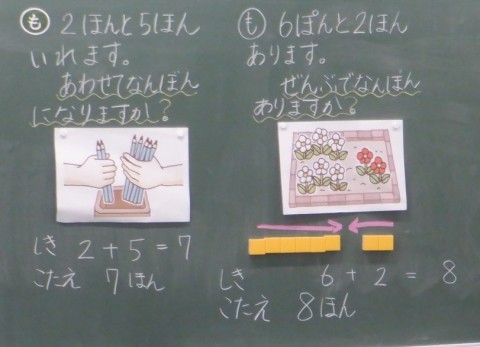 も 2ほんと5ほん
いれます。
あわせてなんぼん
になりますか?
しき 2+5=7
こたえ 7ほん
も 6ぽんと2ほん
あります。
ぜんぶでなんぼん
ありますか?
しき 6+2=8
こたえ 8ほん